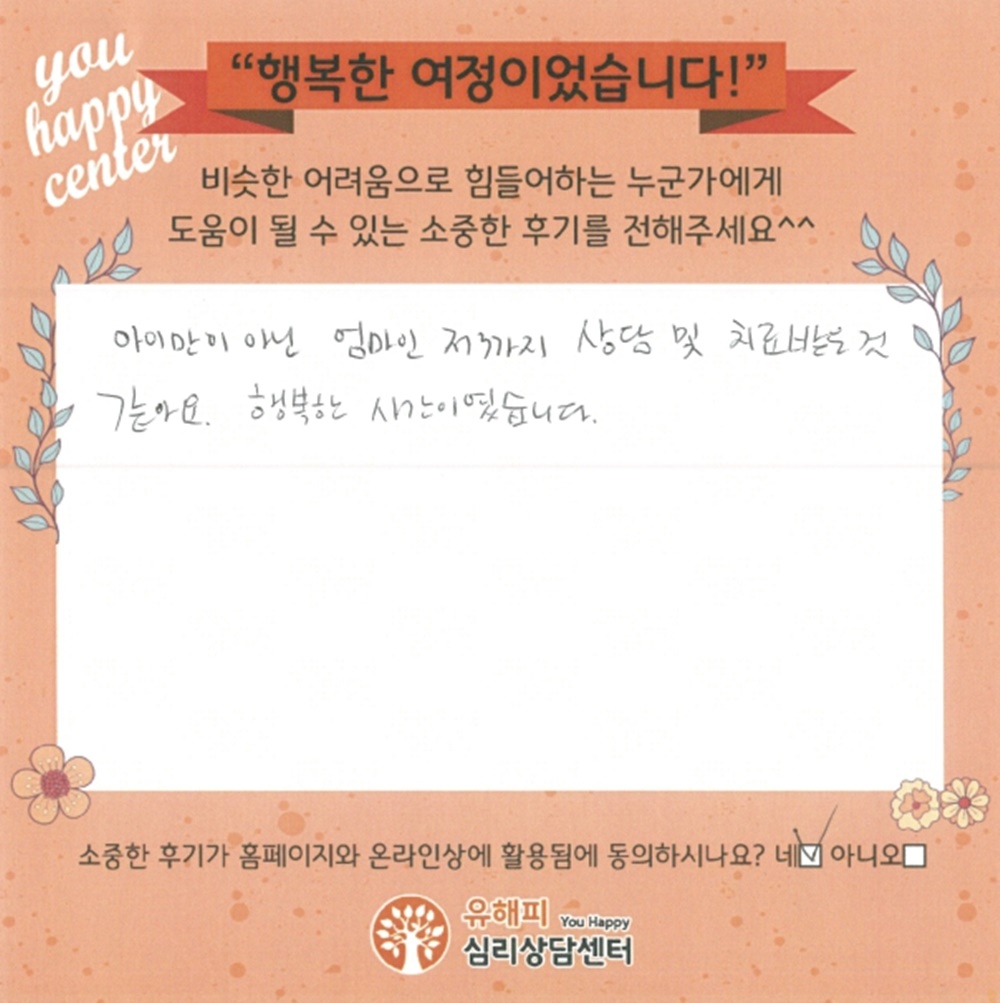 you
happy
center
“행복한 여정이었습니다!”
비슷한 어려움으로 힘들어하는 누군가에게
도움이 될 수 있는 소중한 후기를 전해주세요^^
아이만이 아닌 엄마인 저까지 상담 및 치료받은 것
같아요. 행복한 시간이였습니다.
소중한 후기가 홈페이지와 온라인상에 활용됨에 동의하시나요? 네 아니오
유해피 You Happy
심리상담센터